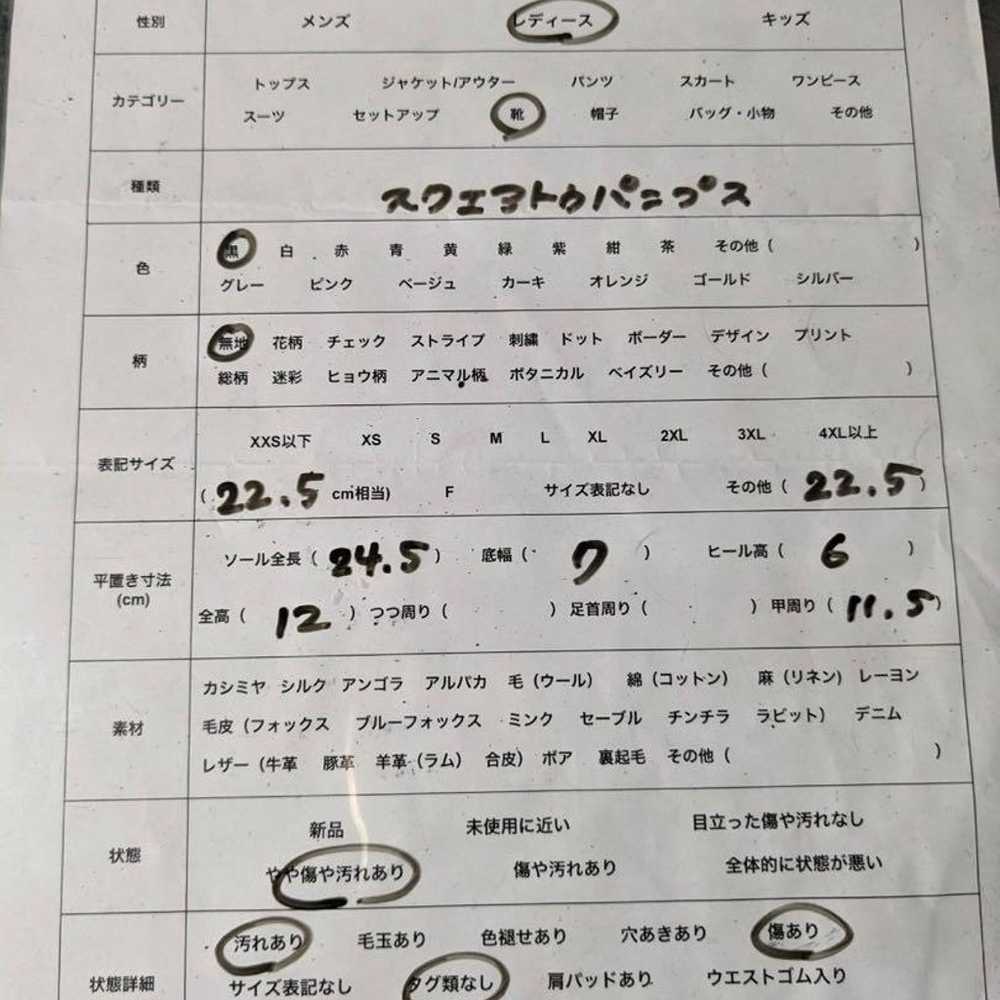 性別 メンズ レディース キッズ
カテゴリー トップス ジャケット/アウター パンツ スカート ワンピース
スーツ セットアップ 靴 帽子 バッグ・小物 その他
種類 スクエアトゥパンプス
色 黒 白 赤 青 黄 緑 紫 紺 茶 その他( )
グレー ピンク ベージュ カーキ オレンジ ゴールド シルバー
柄 無地 花柄 チェック ストライプ 刺繍 ドット ボーダー デザイン プリント
総柄 迷彩 ヒョウ柄 アニマル柄 ボタニカル ペイズリー その他( )
表記サイズ XXS以下 XS S M L XL 2XL 3XL 4XL以上
( 22.5 cm相当) F サイズ表記なし その他( 22.5 )
平置き寸法 (cm) ソール全長( 24.5 ) 底幅( 7 ) ヒール高( 6 )
全高( 12 ) つつ周り( ) 足首周り( ) 甲周り( 11.5 )
素材 カシミヤ シルク アンゴラ アルパカ 毛(ウール) 綿(コットン) 麻(リネン) レーヨン
毛皮(フォックス ブルーフォックス ミンク セーブル チンチラ ラビット) デニム
レザー(牛革 豚革 羊革(ラム) 合皮) ボア 裏起毛 その他( )
状態 新品 未使用に近い 目立った傷や汚れなし
やや傷や汚れあり 傷や汚れあり 全体的に状態が悪い
状態詳細 汚れあり 毛玉あり 色褪せあり 穴あきあり 傷あり
サイズ表記なし タグ類なし 肩パッドあり ウエストゴム入り